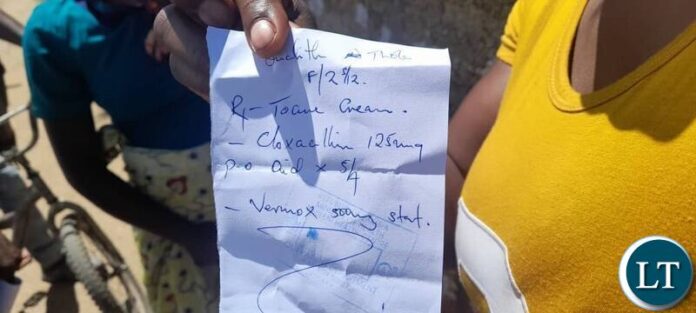 F/2 5/12.
Rx - Toane Cream.
- Cloxacillin 125mg
p-o qid x 5/7
- Vermox 500mg stat.
LT